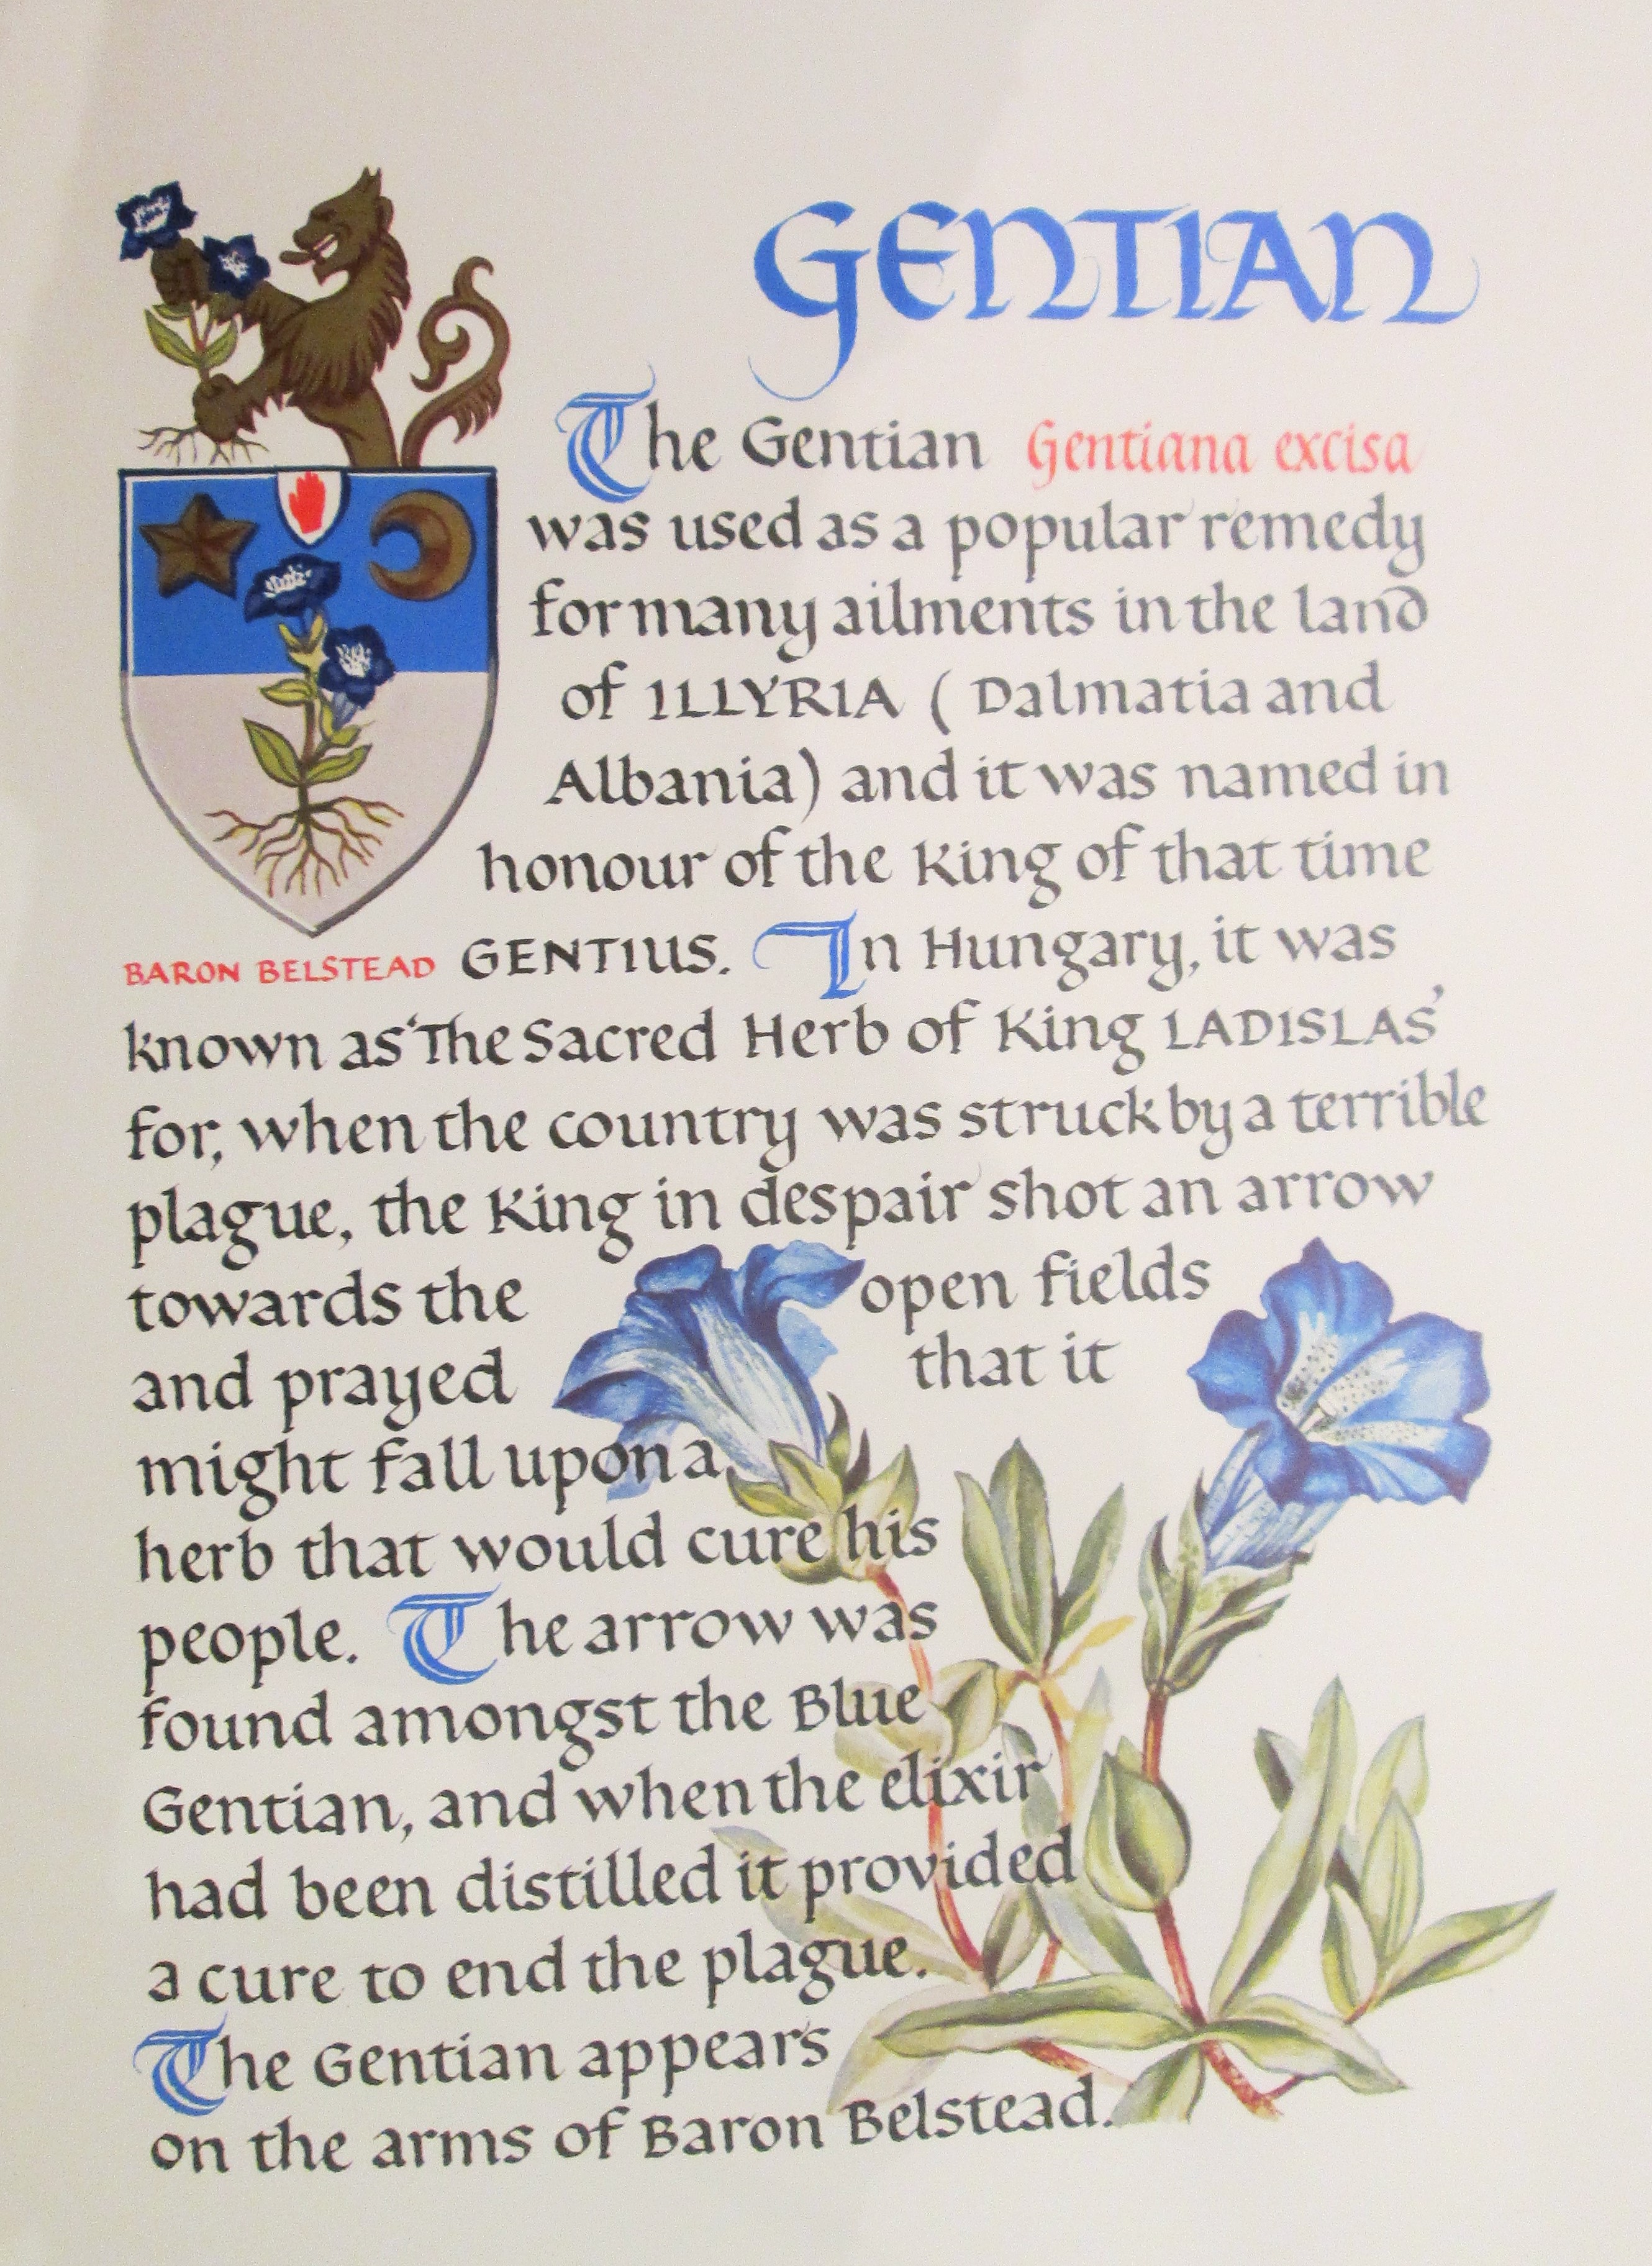 GENTIAN
The Gentian Gentiana excisa
was used as a popular remedy
for many ailments in the land
of ILLYRIA ( Dalmatia and
Albania) and it was named in
honour of the King of that time
BARON BELSTEAD
GENTIUS. In Hungary, it was
known as 'The Sacred Herb of King LADISLAS'
for, when the country was struck by a terrible
plague, the King in despair shot an arrow
towards the open fields
and prayed that it
might fall upon a
herb that would cure his
people. The arrow was
found amongst the Blue
Gentian, and when the elixir
had been distilled it provided
a cure to end the plague.
The Gentian appears
on the arms of Baron Belstead.